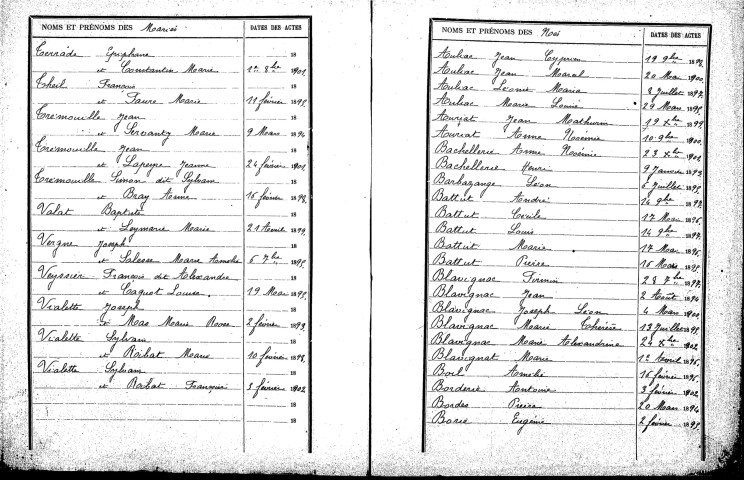 NOMS ET PRÉNOMS DES Mariés DATES DES ACTES
Terrade Epiphane 18
et Constantin Marie 1er 8bre 1901
Theil François 18
et Faure Marie 11 février 1895
Trémouille Jean 18
et Servanty Marie 9 Mars 1896
Trémouille Jean 18
et Lapeyre Jeanne 24 février 1901
Trémouille Simon dit Sylvain 18
et Bray Anne 16 février 1898
Valat Baptiste 18
et Leymarie Marie 21 Avril 1899
Vergne Joseph 18
et Salesse Marie Amélie 6 7bre 1895
Veyssier François dit Alexandre 18
et Caquot Louise 19 Mars 1895
Vialette Joseph 18
et Mas Marie Rose 2 février 1899
Vialette Sylvain 18
et Rabat Marie 10 février 1898
Vialette Sylvain 18
et Rabat Françoise 3 février 1902
18
18
NOMS ET PRÉNOMS DES Nés DATES DES ACTES
Auliac Jean Cyprien 19 9bre
Auliac Jean Marcel 20 Mars 1900
Auliac Léonie Maria 8 Juillet 1897
Auliac Marie Louise 29 Mars 1895
Auriat Jean Mathurin 19 Xbre 1899
Auriat Anne Noémie 10 9bre 1900
Bachellerie Anne Noémie 23 Xbre 1901
Bachellerie Henri 9 Janvier 1893
Barbazange Léon 6 Juillet 1895
Battut André 14 9bre 1897
Battut Cécile 17 Mars 1896
Battut Louis 14 9bre 1897
Battut Marie 17 Mars 1896
Battut Pierre 16 Mars 1895
Blavignac Firmin 28 7bre 1897
Blavignac Jean 2 Août 1894
Blavignac Joseph Léon 4 Mars 1900
Blavignac Marie Thérèse 13 Juillet 1898
Blavignac Marie Alexandrine 24 Xbre 1902
Blavignat Marie 1er Avril 1896
Boil Amélie 16 février 1896
Borderie Antoine 3 février 1902
Bordes Pierre 20 Mars 1894
Borie Eugénie 2 février 1895